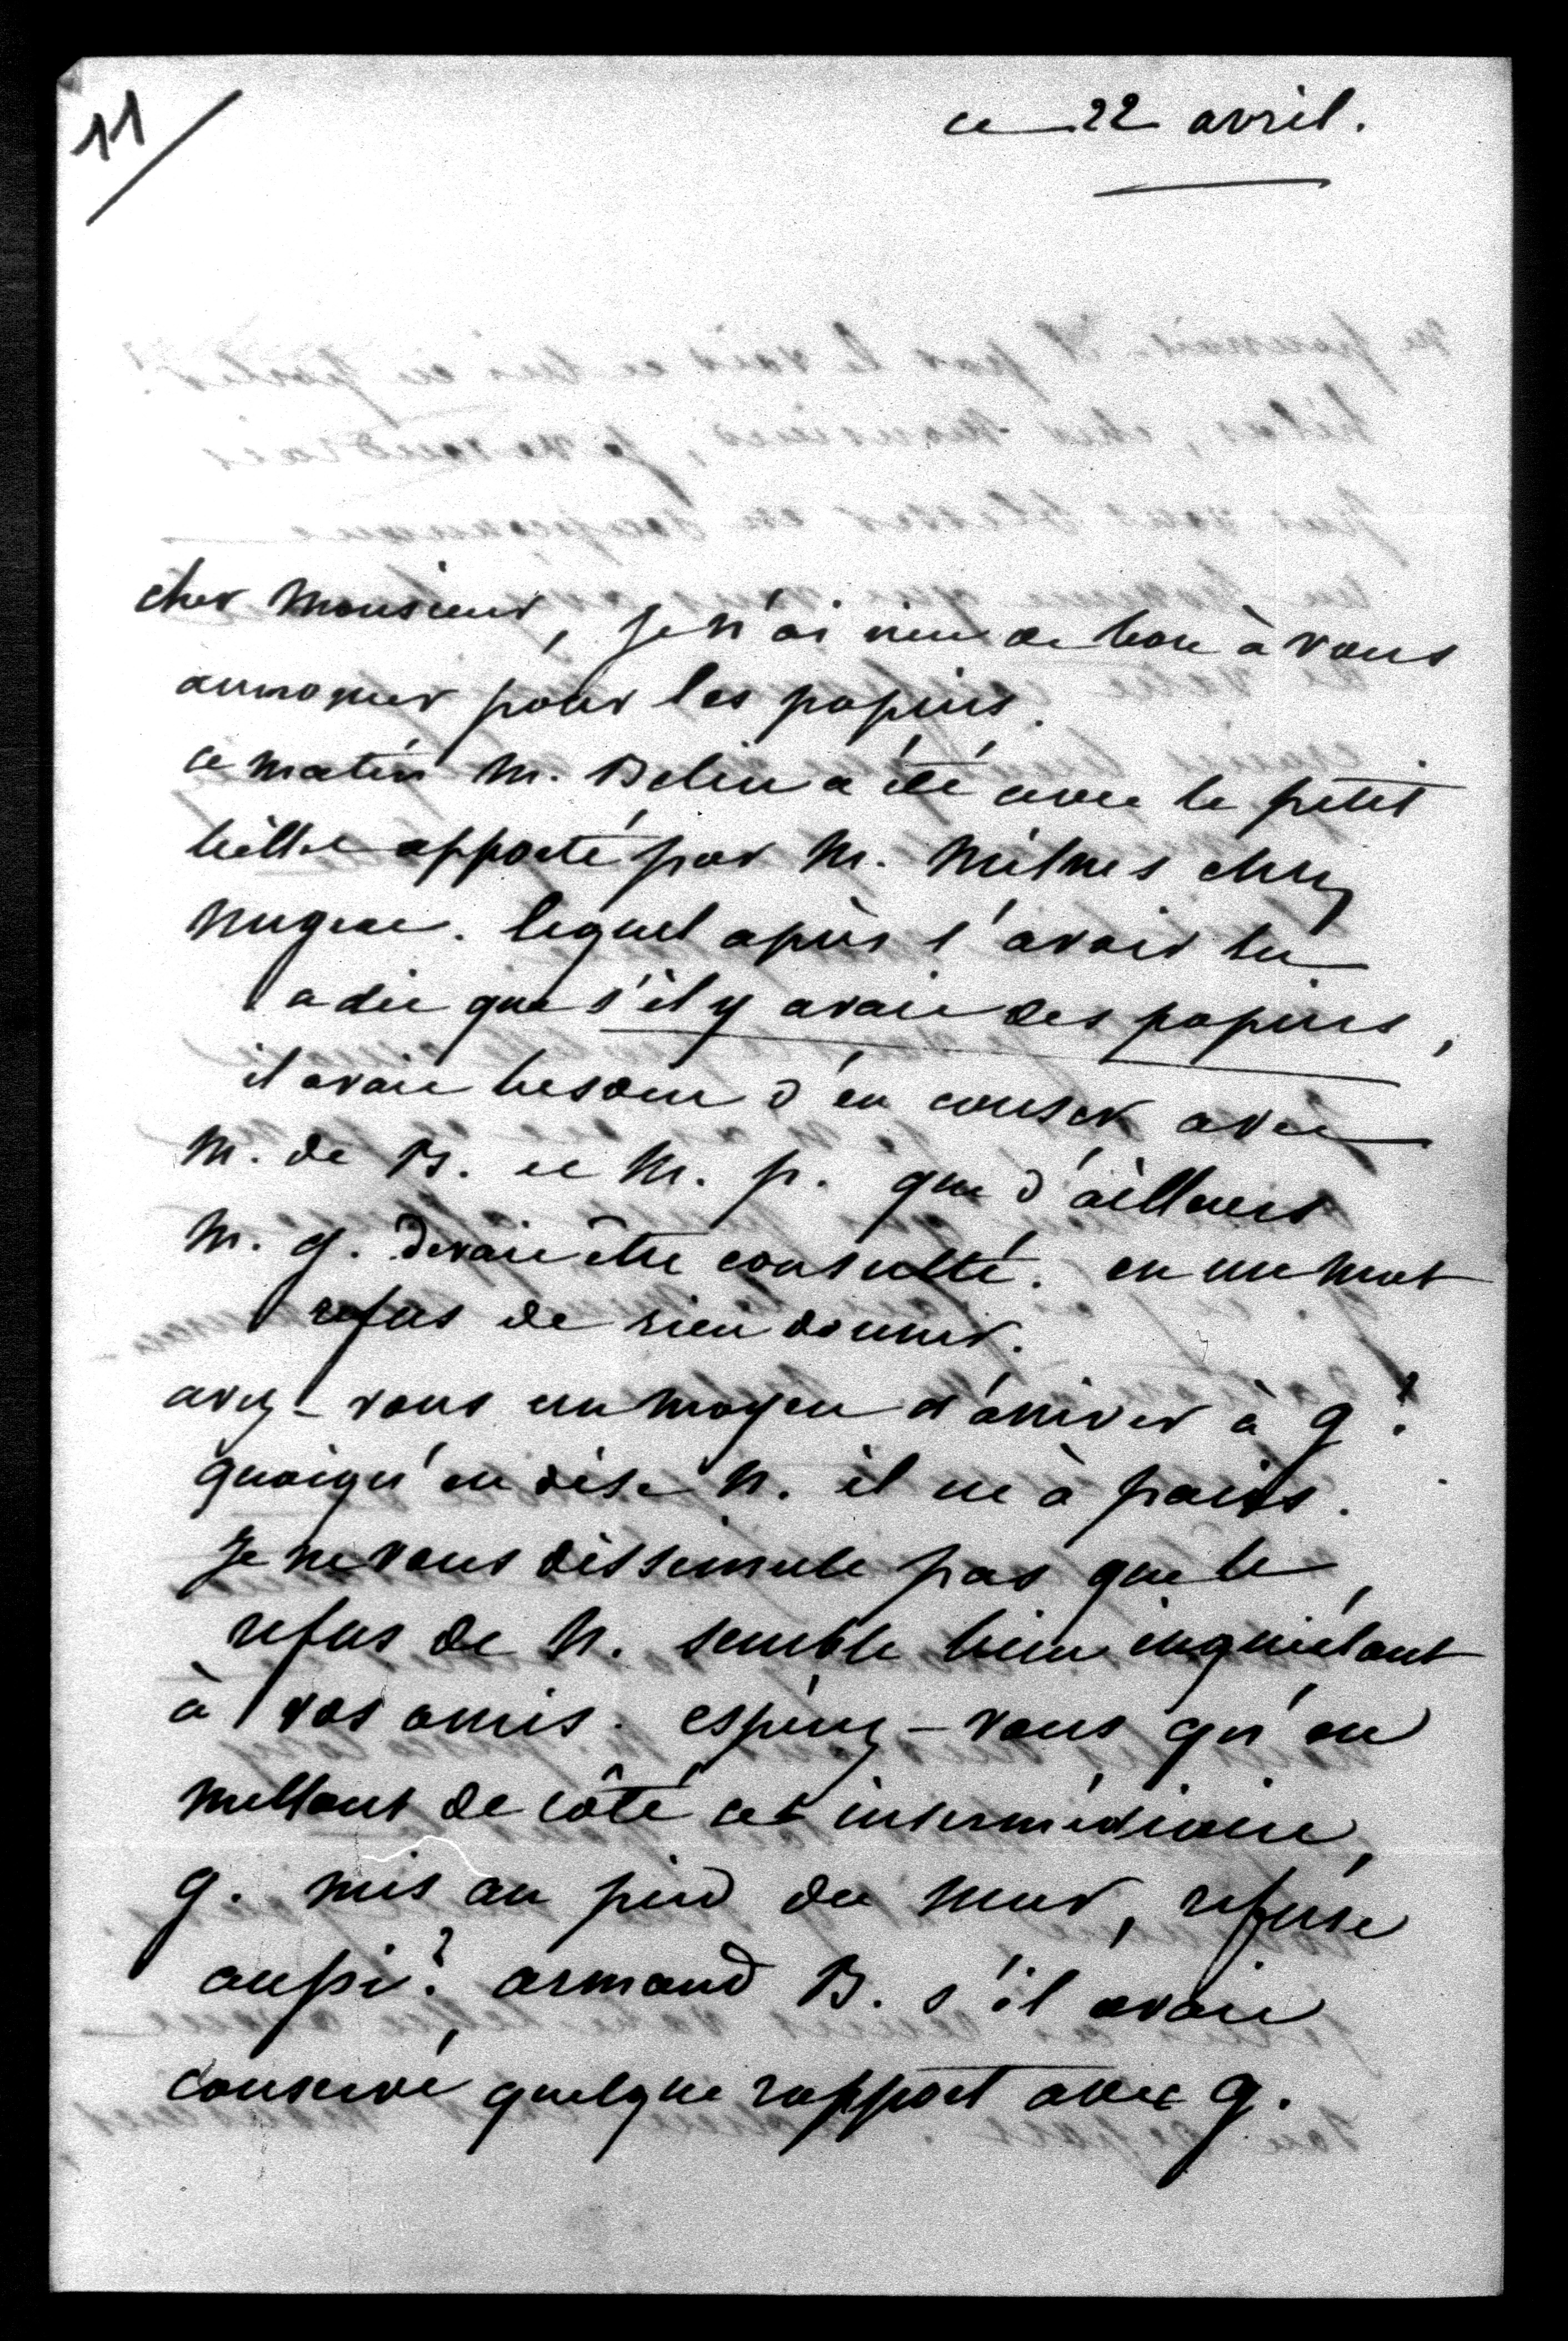 11
ce 22 avril.
cher Monsieur, je n'ai rien de bon à vous
annoncer pour les papiers.
ce matin M. Belin a été avec le petit
billet apporté par M. Milnes chez
Nugent. lequel après l'avoir lu
a dit que s'il y avait des papiers,
il avait besoin d'en causer avec
M. de B. et M. p. que d'ailleurs
M. g. devait être consulté. en un mot
refus de rien donner.
avez-vous un moyen d'arriver à g?
quoiqu'en dise N. il est à paris.
Je ne vous dissimule pas que le
refus de N. semble bien inquiétant
à vos amis. espérez-vous qu'en
mettant de côté cet intermédiaire,
g. mis au pied du mur, refuse
aussi? armand B. s'il avait
conservé quelque rapport avec g.